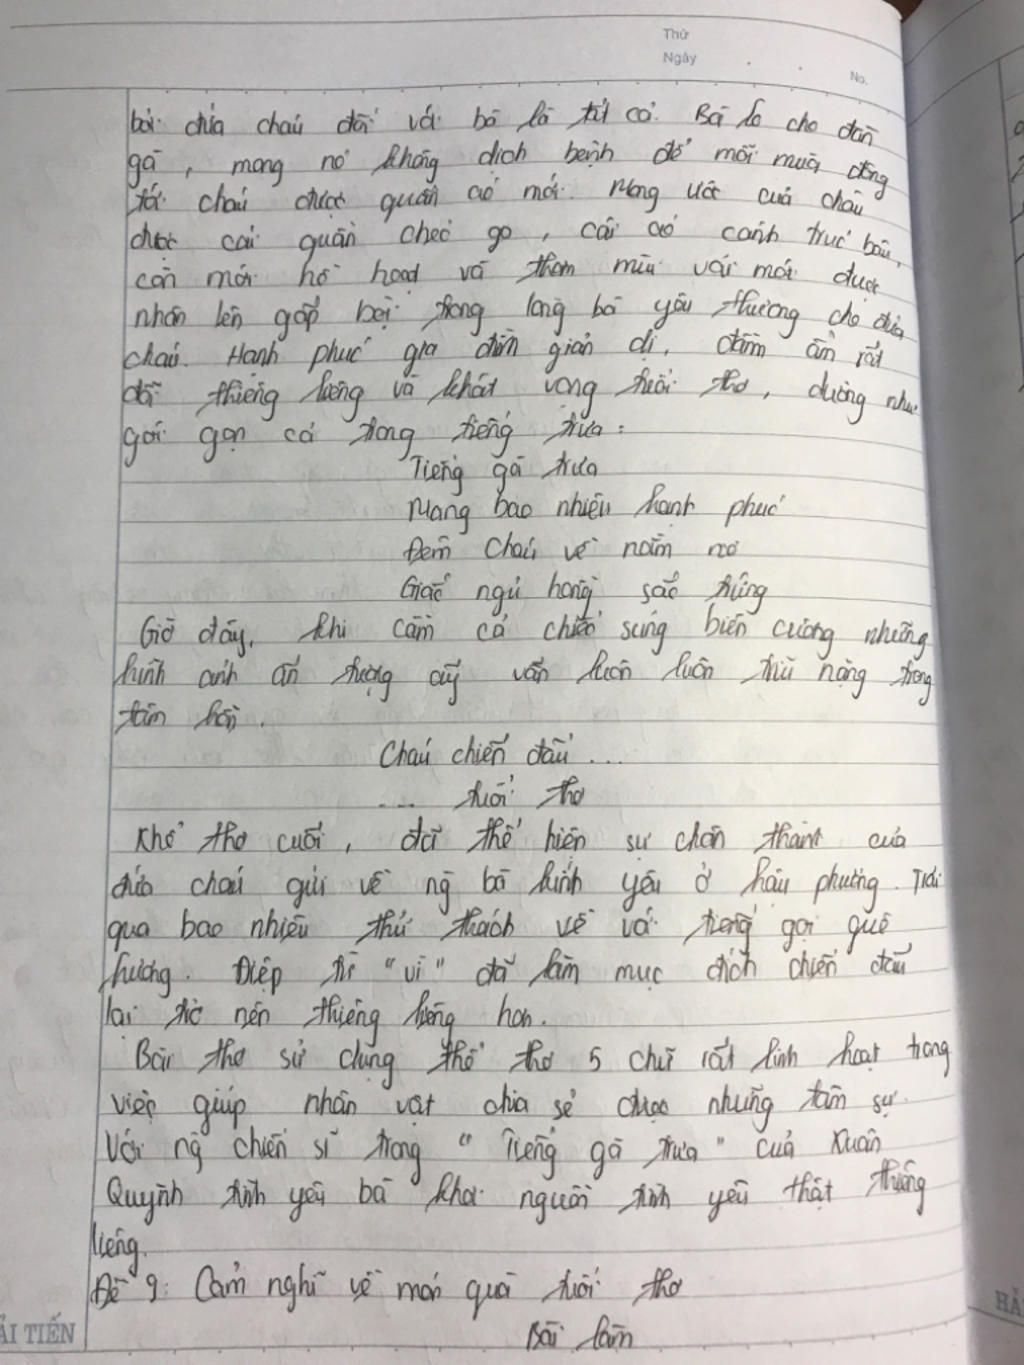 Thứ
Ngày
No.
bởi đứa cháu đối với bà là tất cả. Bà lo cho đàn
gà, mong nó không dịch bệnh để mỗi mùa đông
tới cháu được quần áo mới. Mong ước của cháu
được cái quần chéo go, cái áo cánh trúc bâu,
còn mới hồ hoạt và thơm mùi vải mới được
nhân lên gấp bội trong lòng bà yêu thương cho đứa
cháu. Hạnh phúc gia đình giản dị, đầm ấm rất
đỗi thiêng liêng và khát vọng tuổi thơ, dường như
gói gọn cả trong tiếng trưa:
Tiếng gà trưa
Mang bao nhiêu hạnh phúc
Đêm cháu về nằm mơ
Giấc ngủ hồng sắc trứng
Giờ đây, khi cầm cả chiếc súng biên cương những
hình ảnh ấn tượng ấy vẫn luôn luôn trĩu nặng trong
tâm hồn.
Cháu chiến đấu ...
... tuổi thơ
Khổ thơ cuối, đã thể hiện sự chân thành của
đứa cháu gửi về ng bà kính yêu ở hậu phương. Trải
qua bao nhiêu thử thách về với tiếng gọi quê
hương. Điệp từ "vì" đã làm mục đích chiến đấu
lại trở nên thiêng liêng hơn.
Bài thơ sử dụng thể thơ 5 chữ rất linh hoạt trong
việc giúp nhân vật chia sẻ được những tâm sự.
Với ng chiến sĩ trong "Tiếng gà trưa" của Xuân
Quỳnh tình yêu bà khơi nguồn tình yêu thật thiêng
liêng.
Đề 9: Cảm nghĩ về món quà tuổi thơ
Bài làm
ẢI TIẾN
HẢ